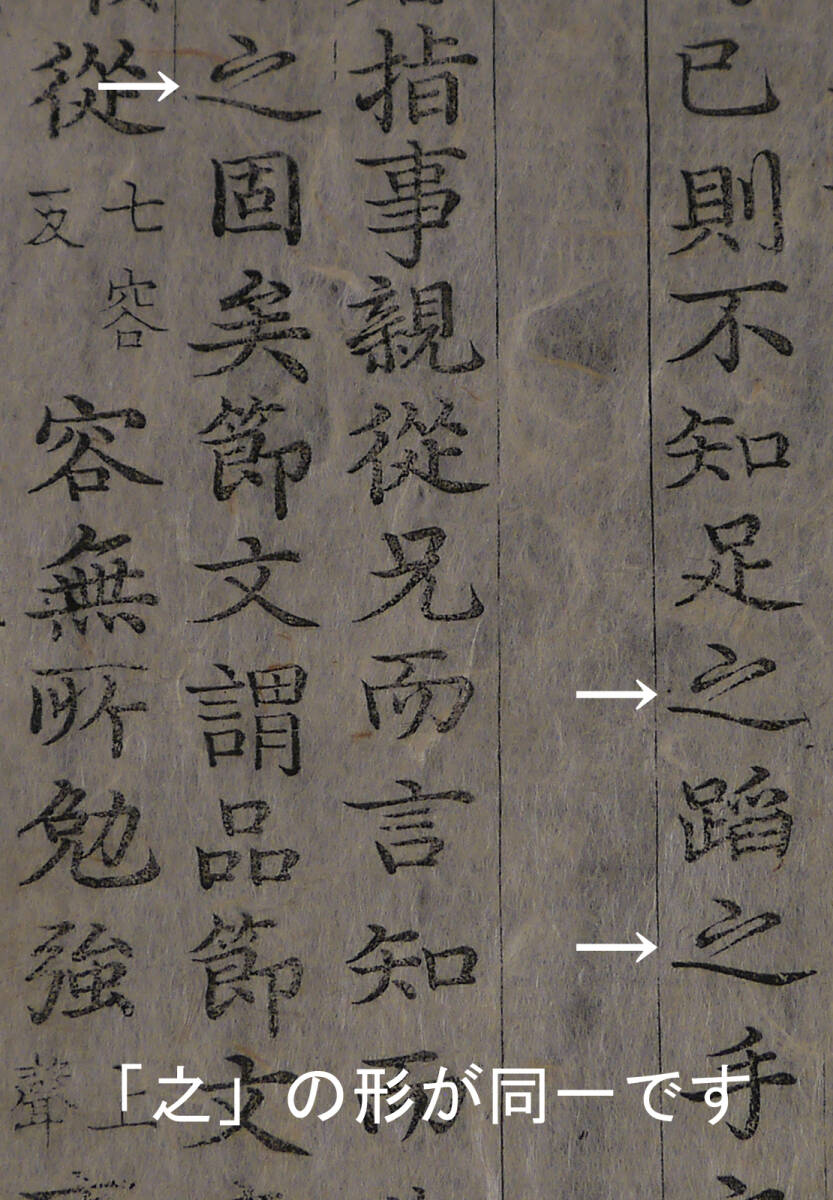 已則不知足之蹈之手
指事親從兄而言知而
之固矣節文謂品節文
從
七容
一反
容無所勉強
上
聲
→
→
→
「之」の形が同一です